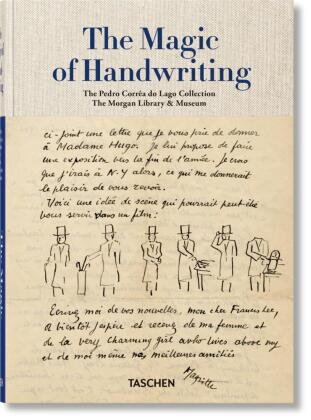 The Magic
of Handwriting
The Pedro Corrêa do Lago Collection
The Morgan Library & Museum
ci-joint une lettre que je vous prie de donner
à Madame Hugo. Je lui propose de faire
une exposition vers la fin de l'année. Je crois
que j'irais à N.Y alors, ce qui me donnerait
le plaisir de vous revoir.
Voici une idée de scène qui pourrait peut-être
vous servir dans un film:
Ecrivez moi de vos nouvelles, mon cher
A bientôt j'espère et recevez de ma femme et
de la very charming girl who lives above my
et de moi même nos meilleures amitiés
Magritte
TASCHEN